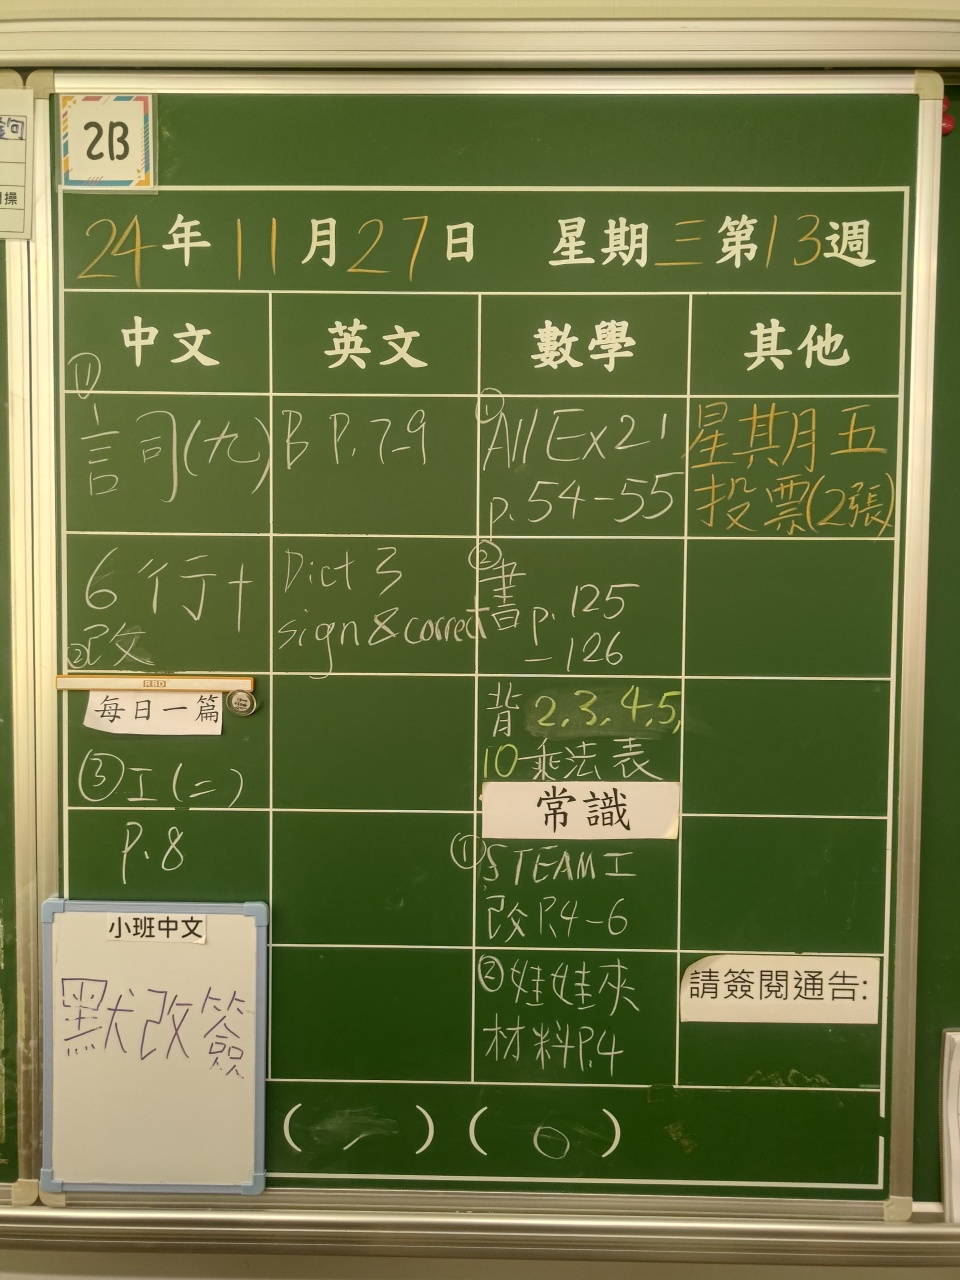 2B
24年11月27日 星期三第13週
中文
①
詞(九)
6行+
②改
RBD
每日一篇
③工(二)
P.8
小班中文
默改簽
英文
B P.7-9
Dict 3
sign & correct
數學
①All Ex21
p.54-55
②書p.125
-126
背2,3,4,5,
10乘法表
常識
①STEAM工
改P.4-6
②娃娃夾
材料P.4
其他
星期五
投票(2張)
請簽閱通告:
( ) ( 0 )